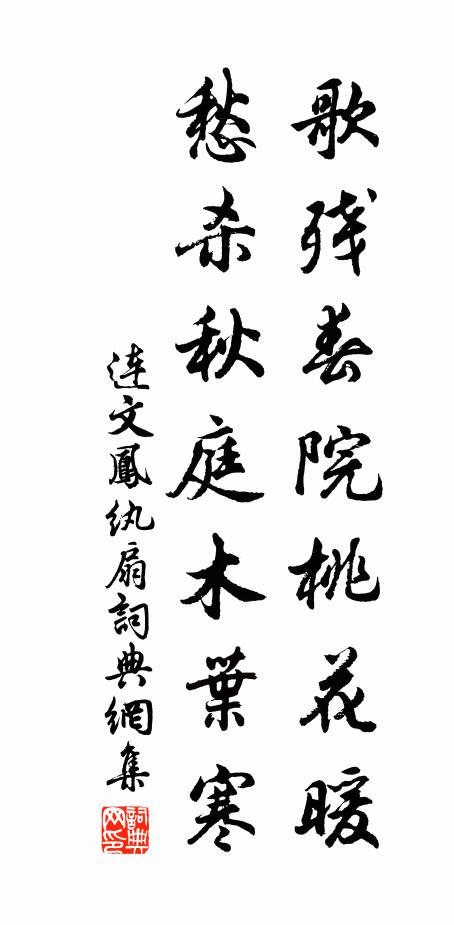 歌残春院桃花暖
愁杀秋庭木葉寒
連文鳳紈扇詞典網集
詞典網印